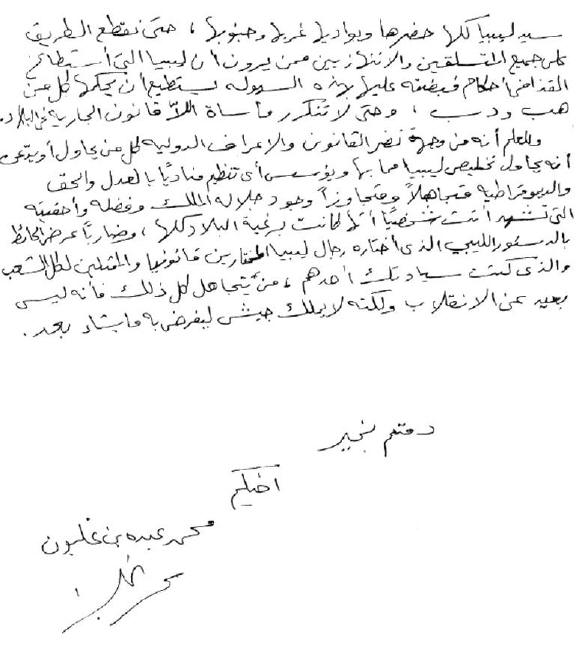 سيد ليبيا كلها حضرها وبواديها غربها وجنوبها ، حتى نقطع الطريق
على جميع المتسلقين والانتهازيين ممن يرون أن ليبيا التى أستطاع
القذافى أحكام قبضته عليها بهذه السهوله يستطيع أن يحكمها كل من
هب ودب ، وحتى لا تتكرر مأساة اللا قانون الجارية فى البلاد.
وللعلم أنه من وجهة نضر القانون والاعراف الدوليه كل من يحاول أو يدعى
أنه يحاول تخليص ليبيا مما بها ويؤسس أى تنظيم مناديًا بالعدل والحق
والديموقراطيه متجاهلاً ومتجاوزاً وجود جلاله الملك وفضله وأحقيته
التى تشهد أنت شخصيًا أنها كانت برغبة البلاد كلها ، وضاربًا عرض الحائط
بالدستور الليبى الذى أختاره رجال ليبيا المختارين قانونيا والممثلين لكل الشعب
والذى كنت سيادتك أحدهم ، من يتجاهل كل ذلك فأنه ليس
بعيد عن الانقلاب ولكنه لا يملك جيش ليفرض به ما يشاء بعد .
دمتم بخير
أخيكم
محمد عبده بن غلبون